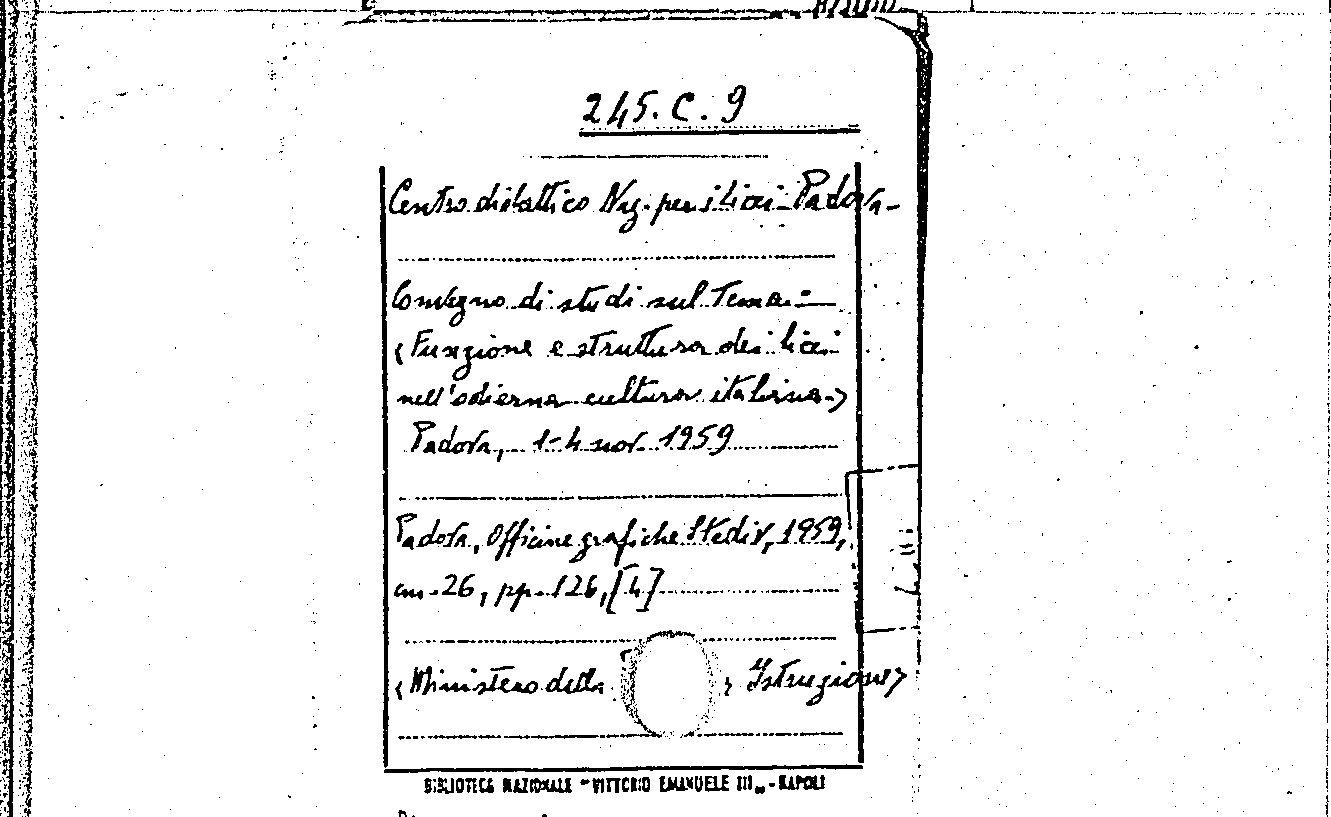 245.C.9
Centro didattico Naz. per i licei - Padova -
Convegno di studi sul Tema: -
<Funzione e struttura dei licei
nell'odierna cultura italiana->
Padova, 1-4 nov. 1959
Padova, Officine grafiche Stediv, 1959,
cm. 26, pp. 126, [4]
<Ministero della Istruzione>
BIBLIOTECA NAZIONALE "VITTORIO EMANUELE III„ - NAPOLI